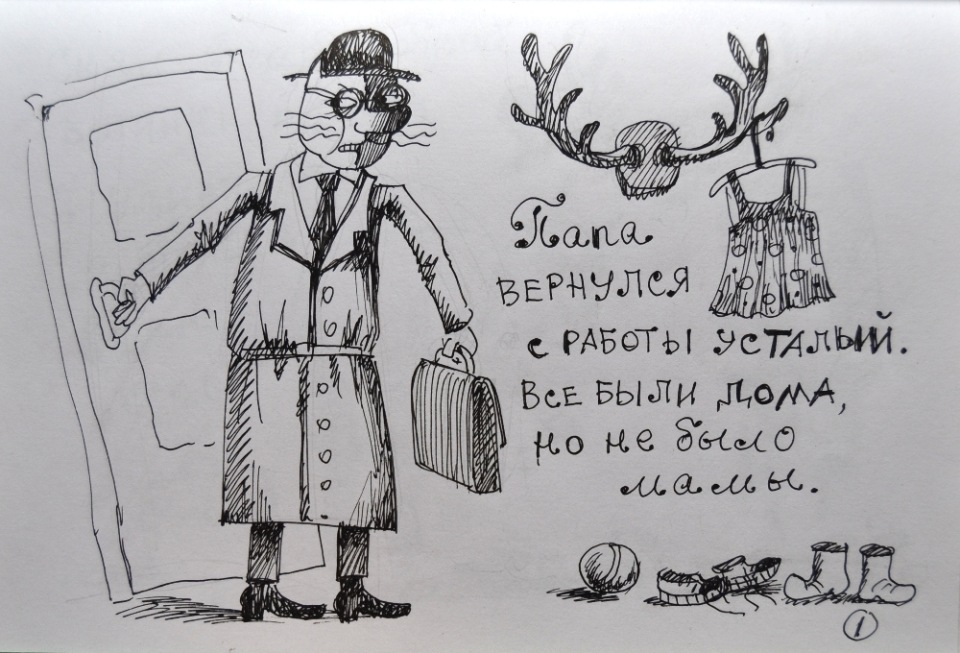 Папа
ВЕРНУЛСЯ
с РАБОТЫ УСТАЛЫЙ.
ВСЕ БЫЛИ ДОМА,
но не было
мамы.
1